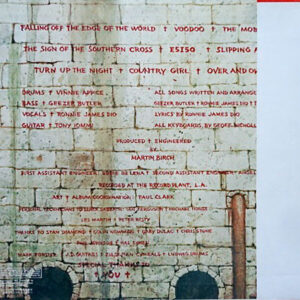 FALLING OFF THE EDGE OF THE WORLD † VOODOO † THE MOB
THE SIGN OF THE SOUTHERN CROSS † E5150 † SLIPPING A
TURN UP THE NIGHT † COUNTRY GIRL † OVER AND OV
DRUMS † VINNIE APPICE
ALL SONGS WRITTEN AND ARRANGE
BASS † GEEZER BUTLER
GEEZER BUTLER † RONNIE JAMES DIO † 
VOCALS † RONNIE JAMES DIO
LYRICS BY RONNIE JAMES DIO
GUITAR † TONY IOMMI
ALL KEYBOARDS BY GEOFF NICHOLL
PRODUCED † ENGINEERED
BY
MARTIN BIRCH
FIRST ASSISTANT ENGINEER † EDDIE DELENA † SECOND ASSISTANT ENGINEER † ANGEL
RECORDED AT THE RECORD PLANT, L.A.
ART † ALBUM COORDINATION † PAUL CLARK
LES MARTIN † PETER RESTY
THANKS TO STAN DIAMOND † COLIN NEWMAN † GARY DULAC † CHRIS STONE
SPECIAL THANKS TO
† YOU †